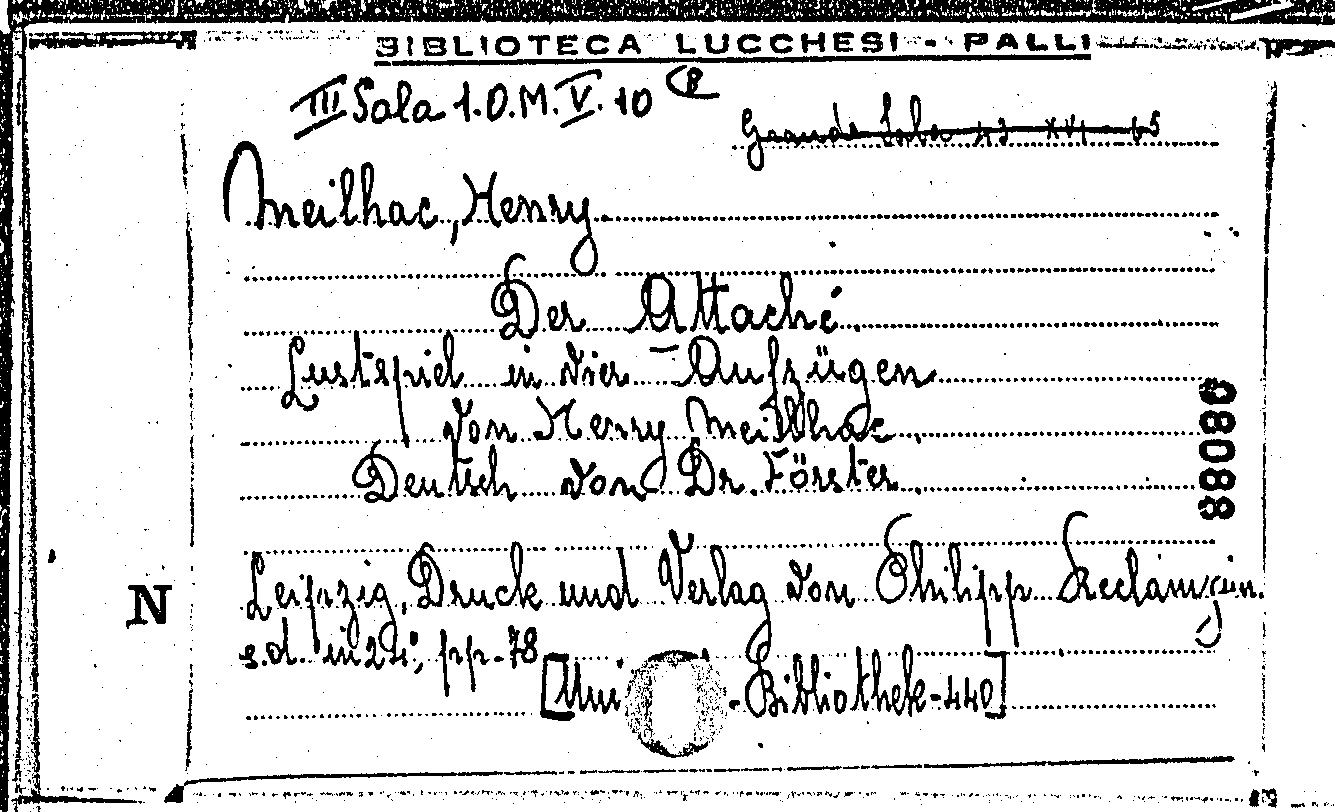 BIBLIOTECA LUCCHESI - PALLI
III Sala 1.O.M.V.10 (B
Grande Sala 43 XVI - 65
Meilhac, Henry.
Der Attaché.
Lustspiel in vier Aufzügen
von Henry Meilhac.
Deutsch von Dr. Förster.
98088
Leipzig, Druck und Verlag von Philipp Reclam jun.
N
s.d. in 24°, pp. 78
[Uni - Bibliothek - 440]